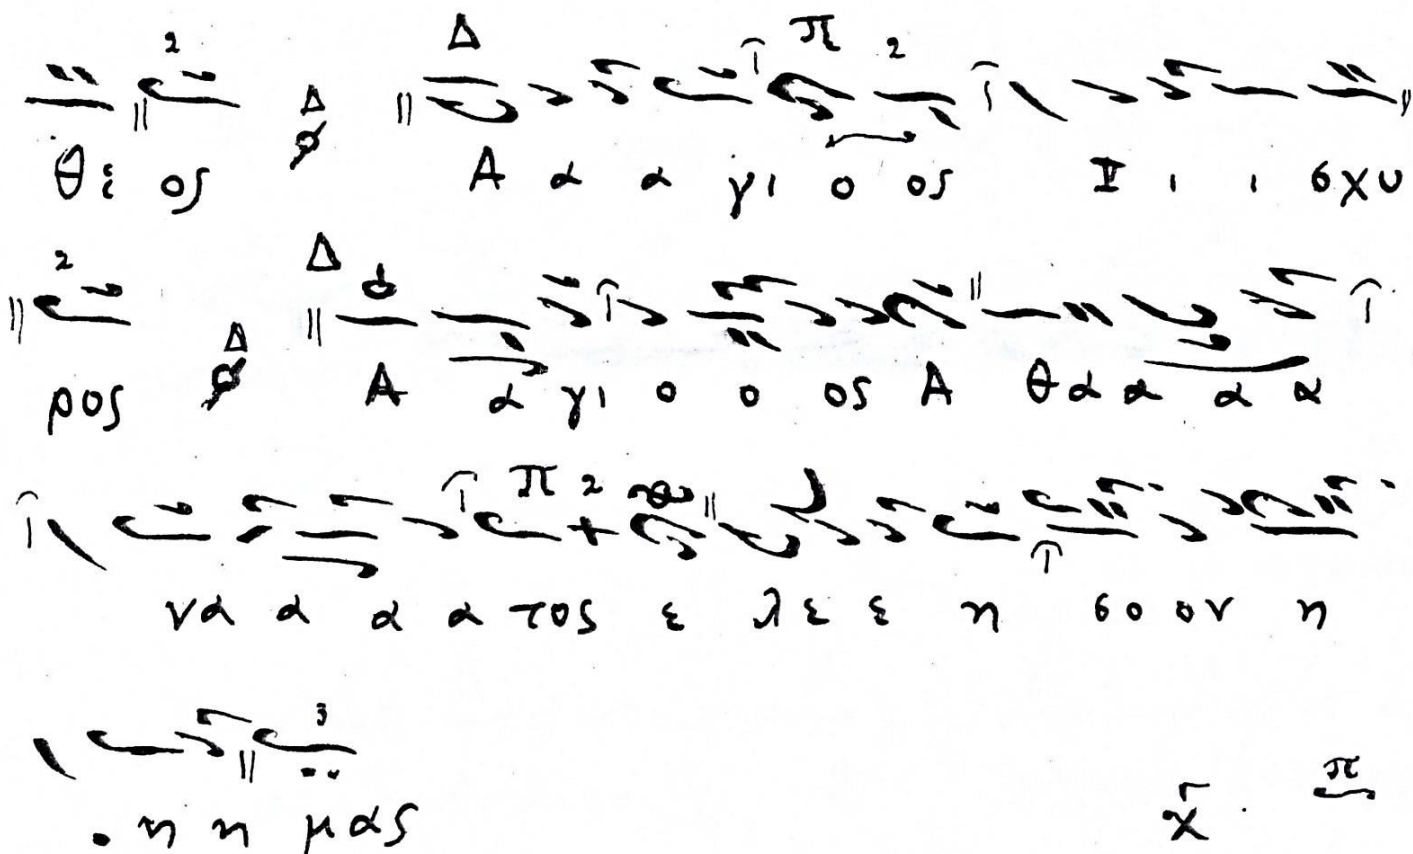 θε ος Α α α γι ο ος Ι ι ι σχυ
ρος Α α γι ο ο ος Α θα α α α
να α α α τος ε λε ε η σο ον η
η η μας